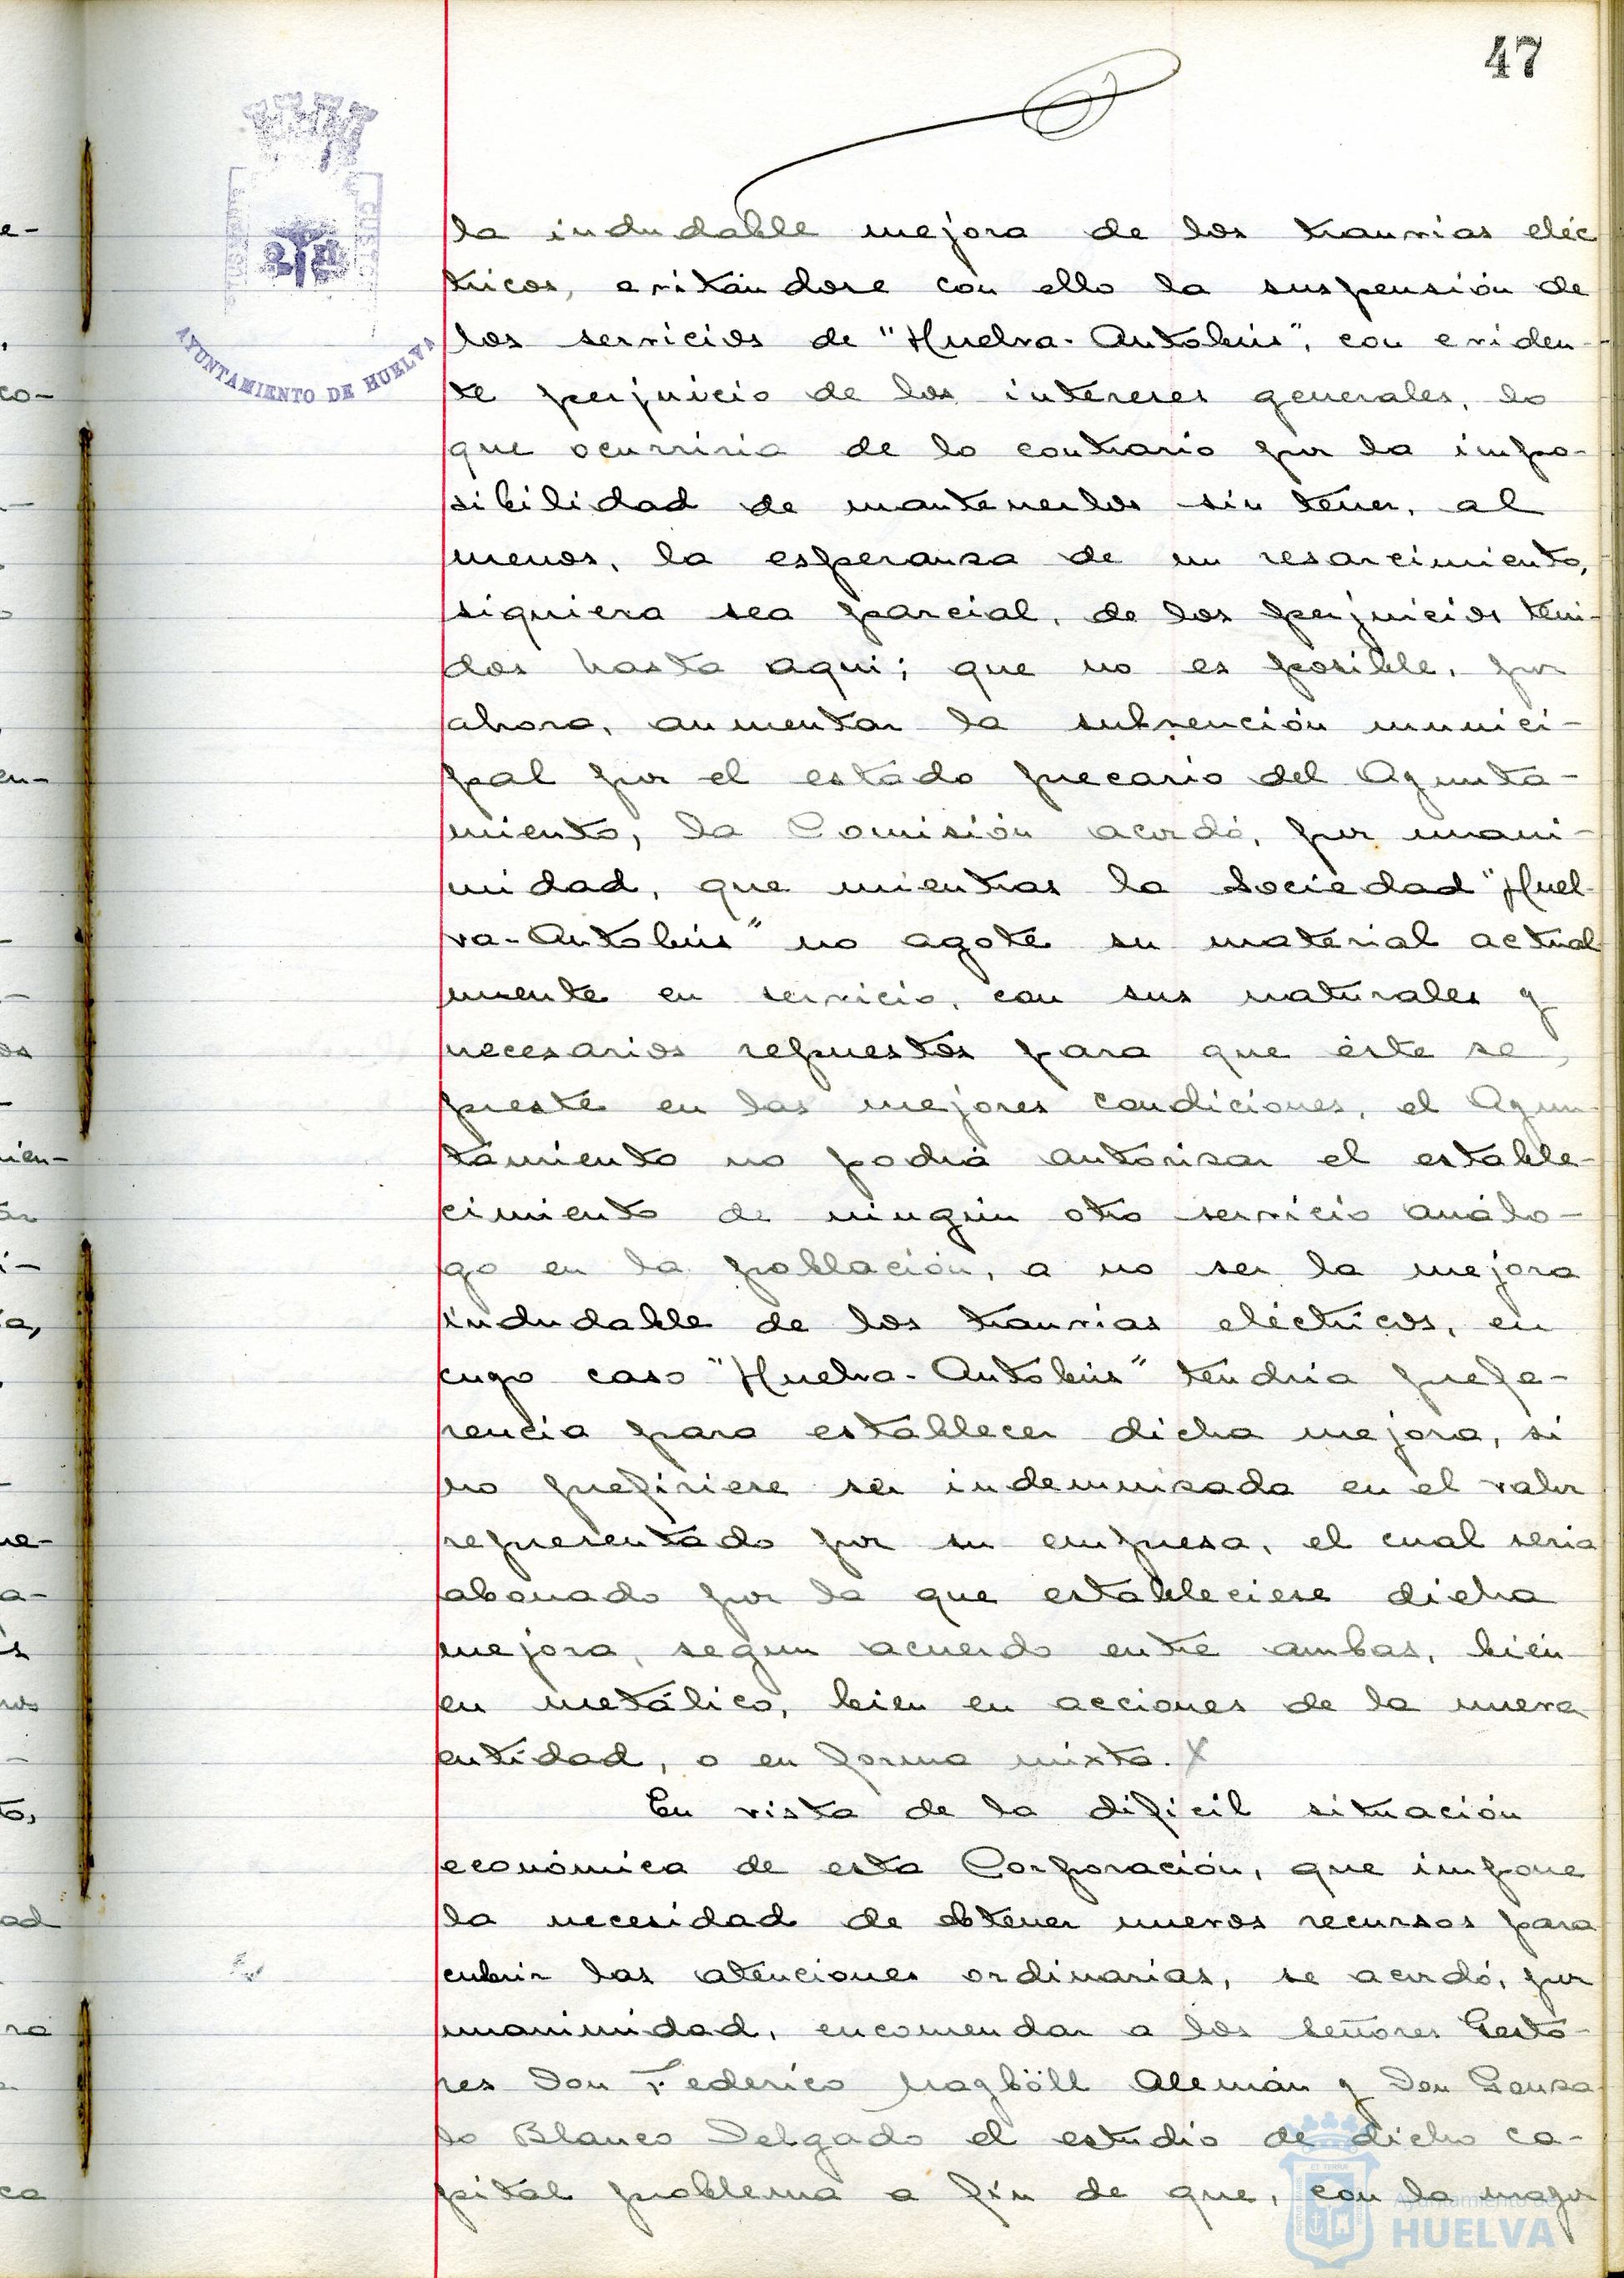 47
AYUNTAMIENTO DE HUELVA
la indudable mejora de los tranvias eléc
tricos, evitándose con ello la suspensión de
los servicios de "Huelva-Autobús", con eviden-
te perjuicio de los intereses generales, lo
que ocurriria de lo contrario por la impo-
sibilidad de mantenerlos sin tener, al
menos, la esperanza de un resarcimiento,
siquiera sea parcial, de los perjuicios teni-
dos hasta aqui; que no es posible, por
ahora, aumentar la subvención munici-
pal por el estado precario del Ayunta-
miento, la Comisión acordó, por unani-
midad, que mientras la Sociedad "Huel-
va-Autobús" no agote su material actual
mente en servicio, con sus naturales y
necesarios repuestos para que éste se
preste en las mejores condiciones, el Ayun-
tamiento no podrá autorizar el estable-
cimiento de ningún otro servicio análo-
go en la población, a no ser la mejora
indudable de los tranvias eléctricos, en
cuyo caso "Huelva-Autobús" tendria prefe-
rencia para establecer dicha mejora, si
no prefiriese ser indemnizada en el valor
representado por su empresa, el cual seria
abonado por la que estableciese dicha
mejora, segun acuerdo entre ambas, bien
en metálico, bien en acciones de la nueva
entidad, o en forma mixta. X
En vista de la dificil situación
económica de esta Corporación, que impone
la necesidad de obtener nuevos recursos para
cubrir las atenciones ordinarias, se acordó, por
unanimidad, encomendar a los señores Gesto-
res Don Federico Alemán y Don Gonza-
lo Blanco Delgado el estudio de dicho ca-
pital problema a fin de que, con la mayor
Ayuntamiento de
HUELVA